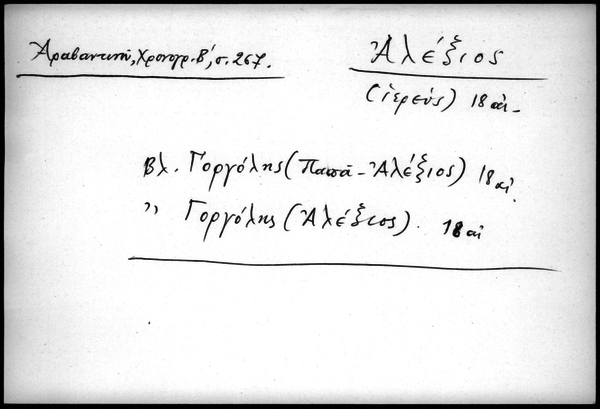 Ἀραβαντινοῦ, Χρονογρ. Β', σ. 267.
Ἀλέξιος
(ἱερεύς) 18 αἰ.
Βλ. Γοργόλης (Παπᾶ - Ἀλέξιος) 18 αἰ.
" Γοργόλης (Ἀλέξιος). 18 αἰ